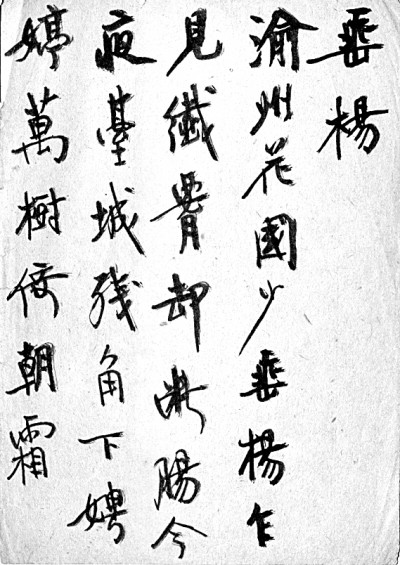 垂楊
渝州花國少垂楊乍
見纖腰却断腸今
夜臺城残角下娉
婷萬樹倚朝霜